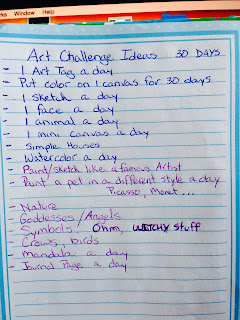 Window Help
Art Challenge Ideas 30 DAYS
- 1 Art Tag a day
- Put color on 1 canvas for 30 days
- 1 sketch a day
- 1 face a day
- 1 animal a day
- 1 mini canvas a day
- Simple Houses
- Watercolor a day
- Paint/sketch like a famous Artist
- Paint a pet in a different style a day
Picasso, Monet...
- Nature
- Goddesses/Angels
- Symbols! Ohm, WITCHY stuff
- Crows, birds
- Mandala a day
- Journal Page a day